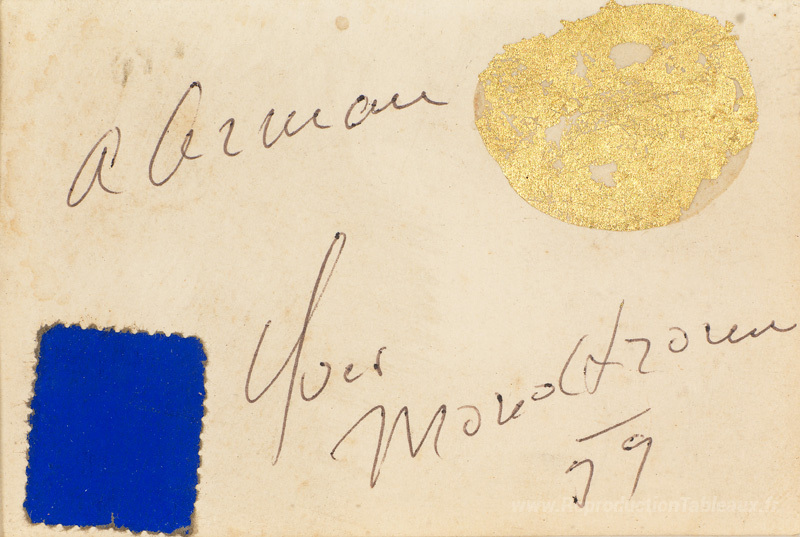 a Arman
Yves
Monochrome
59
www.ReproductionTableaux.fr